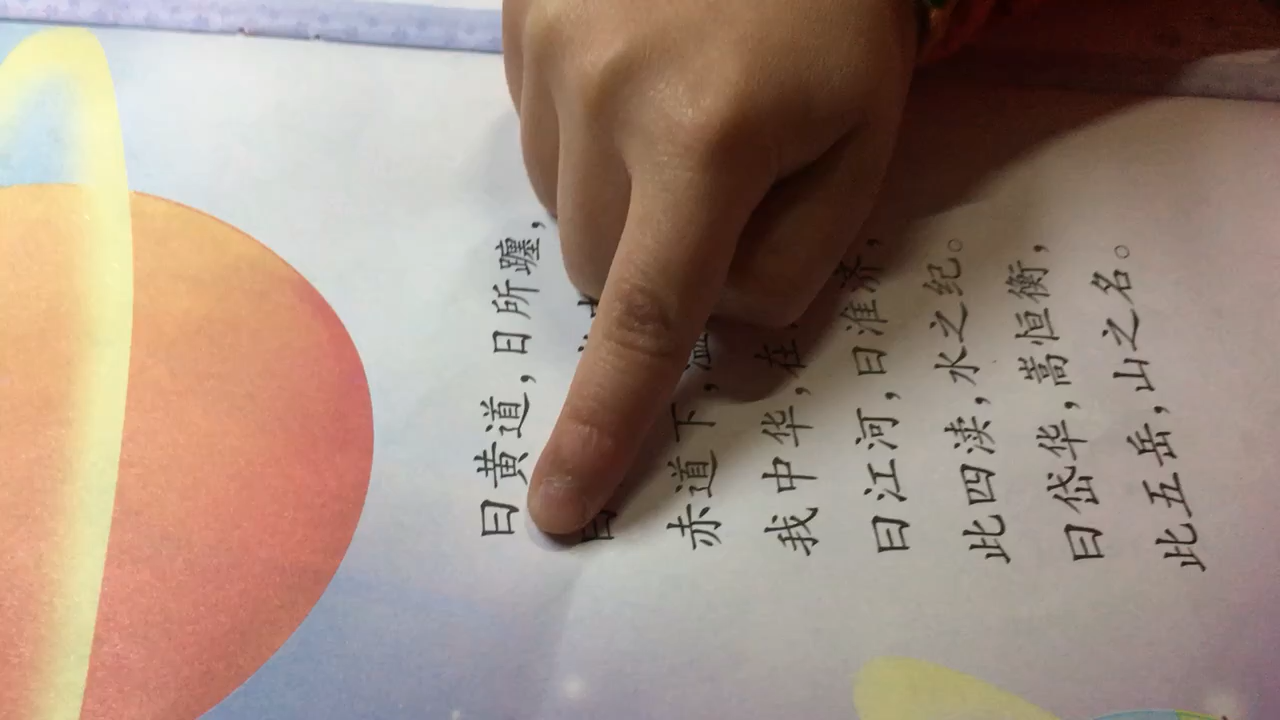 曰黄道，日所躔，
曰
赤道下，温
我中华，在
曰江河，曰淮济，
此四渎，水之纪。
曰岱华，嵩恒衡，
此五岳，山之名。